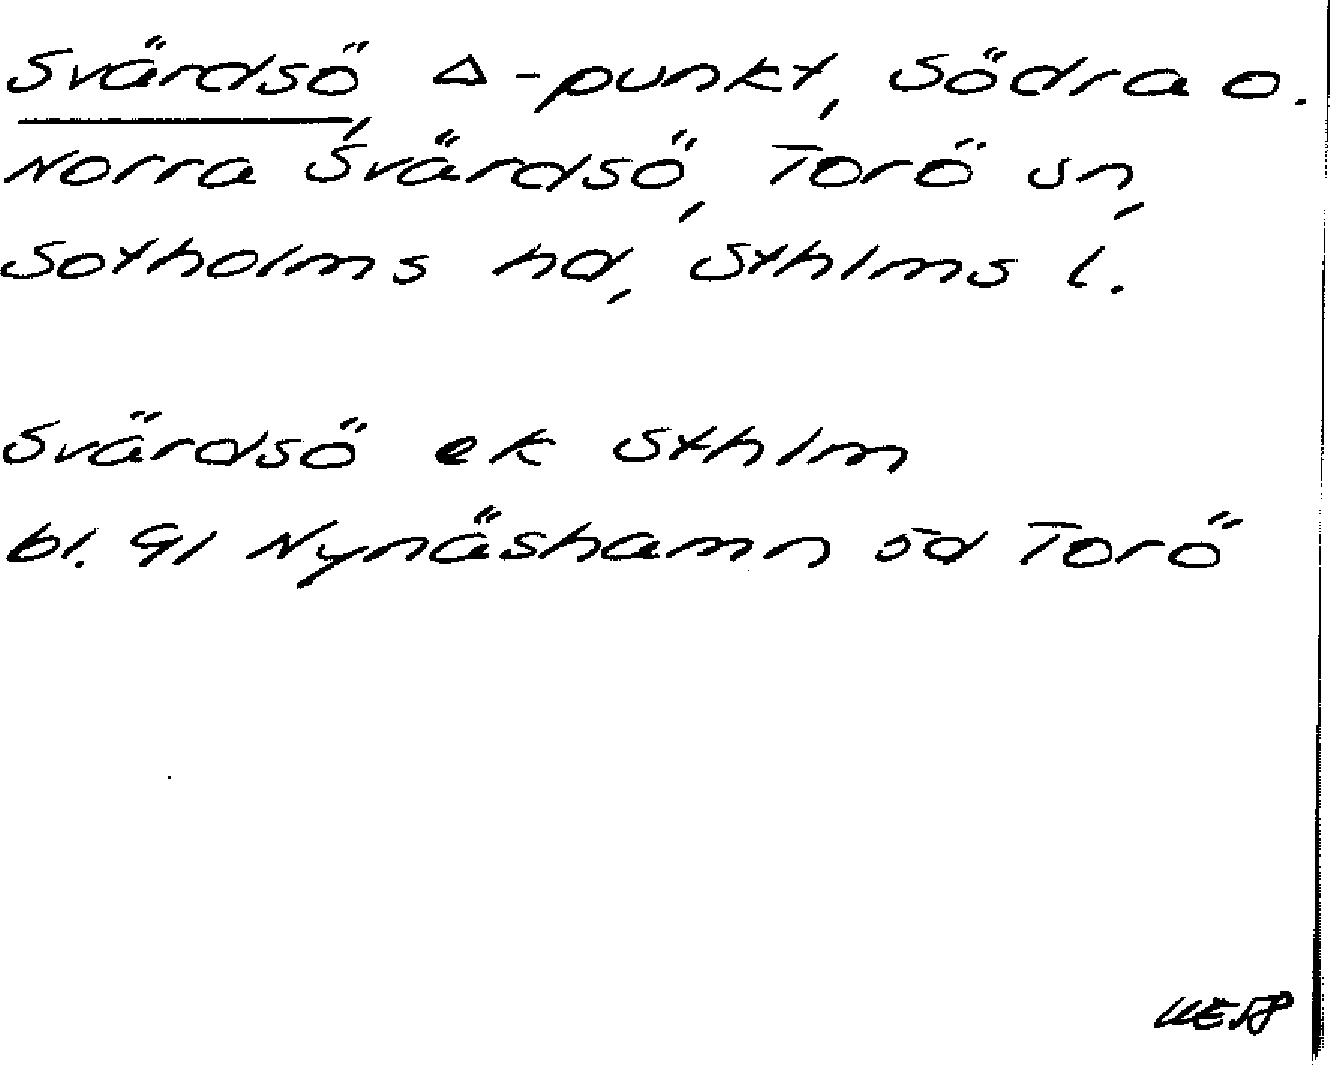 Svärdsö, △-punkt, Södra o.
Norra Svärdsö, Torö sn,
Sotholms hd, Sthlms l.
Svärdsö ek Sthlm
bl. 91 Nynäshamn Sd Torö